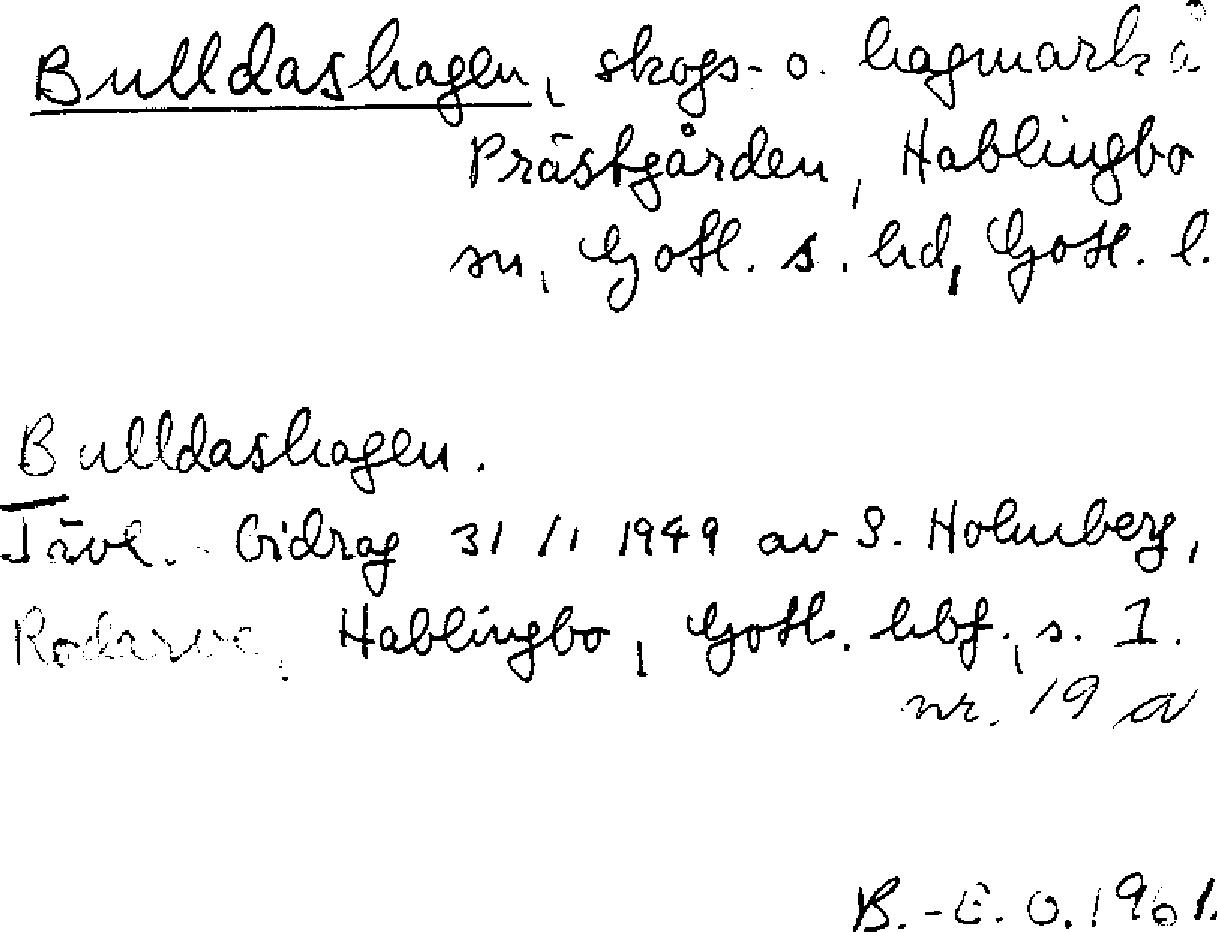 Bulldashagen, skogs- o. hagmark å
Prästgården, Hablingbo
sn, Gotl. s. hd, Gotl. l.
Bulldashagen.
Tävl. bidrag 31/1 1949 av S. Holmberg,
Rodarve, Hablingbo, Gotl. hbf., s. 1.
nr. 19 a
B.-E. O. 1961.